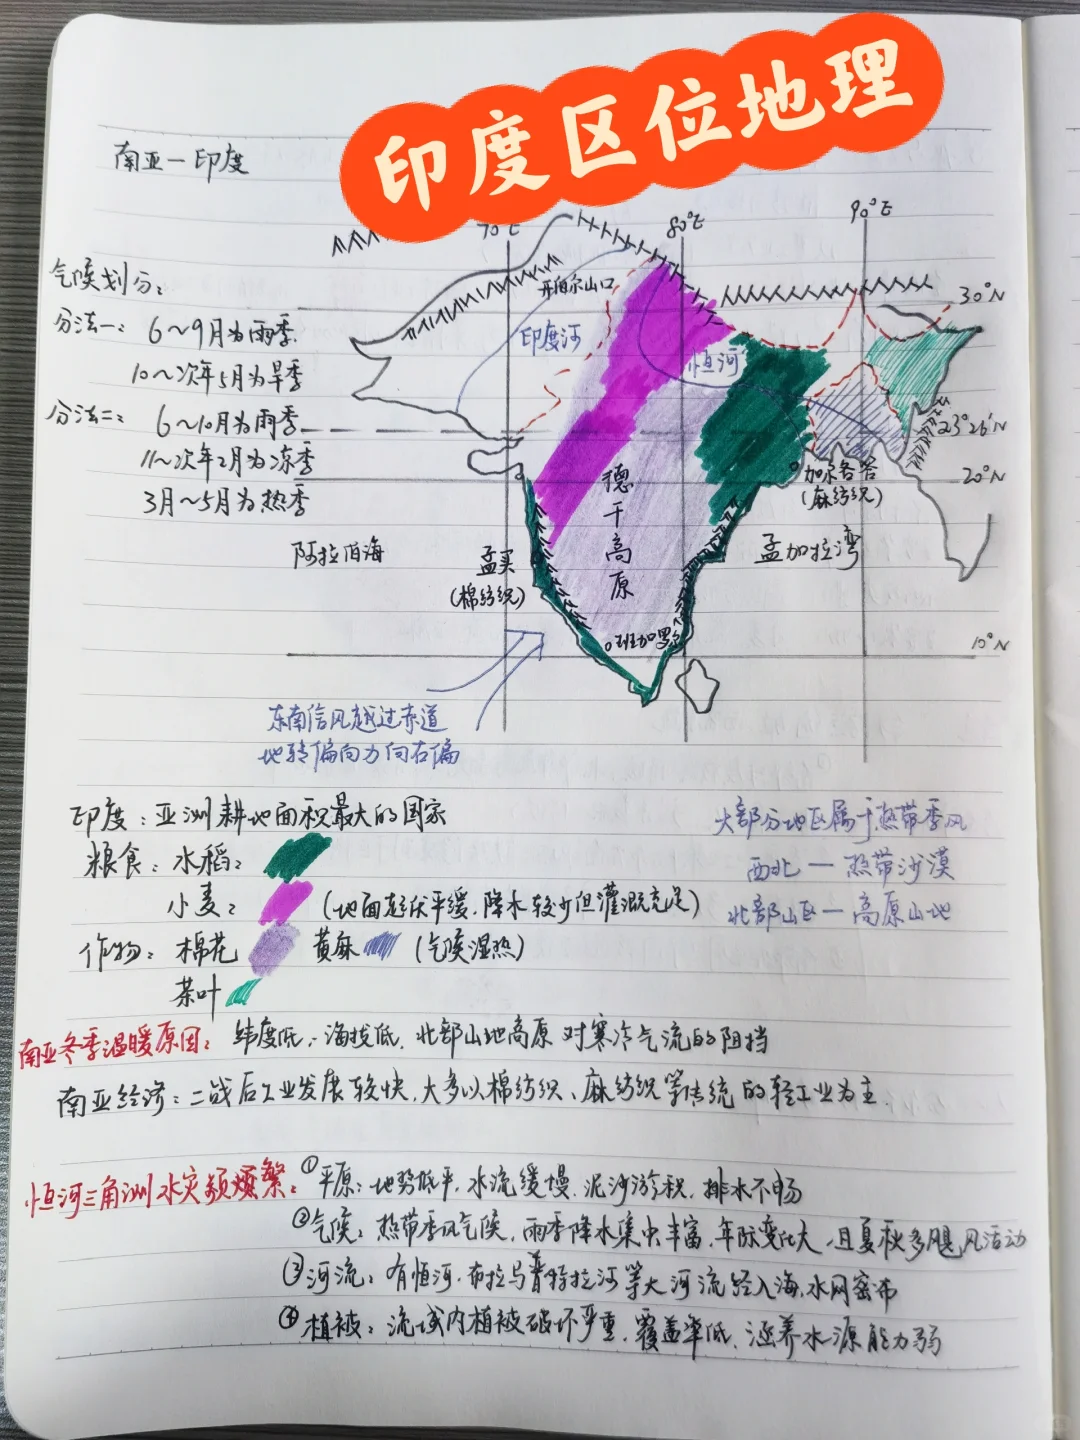 印度区位地理
南亚—印度
70°E
80°E
90°E
气候划分:
分法一: 6~9月为雨季
10~次年5月为旱季
分法二: 6~10月为雨季
11~次年2月为凉季
3月~5月为热季
开伯尔山口
印度河
恒河
30°N
23°26′N
20°N
10°N
德干高原
加尔各答
(麻纺织)
阿拉伯海
孟买
(棉纺织)
孟加拉湾
班加罗尔
东南信风越过赤道
地转偏向力向右偏
印度:亚洲耕地面积最大的国家
粮食:水稻:
小麦: (地面起伏平缓,降水较少但灌溉充足)
作物:棉花 黄麻 (气候湿热)
茶叶
大部分地区属于热带季风
西北—热带沙漠
北部山区—高原山地
南亚冬季温暖原因: 纬度低,海拔低,北部山地高原对寒冷气流的阻挡
南亚经济:二战后工业发展较快,大多以棉纺织、麻纺织等传统的轻工业为主.
恒河三角洲水灾频繁: ①平原:地势低平,水流缓慢,泥沙淤积,排水不畅
②气候:热带季风气候,雨季降水集中丰富,年际变化大,且夏秋多飓风活动
③河流:有恒河、布拉马普特拉河等大河流经入海,水网密布
④植被:流域内植被破坏严重,覆盖率低,涵养水源能力弱